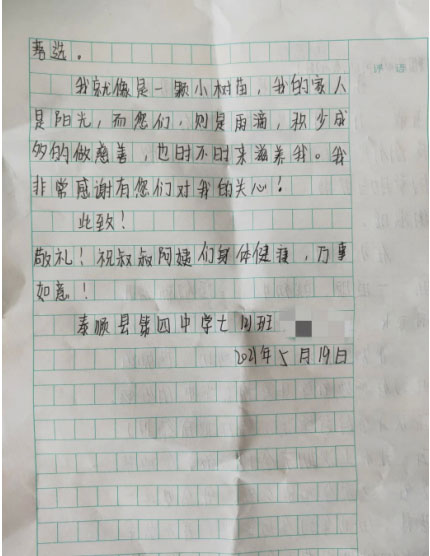 选。
我就像是一颗小树苗，我的家人
是阳光，而您们，则是雨滴，积少成
的做慈善，也时不时来滋养我。我
非常感谢有您们对我的关心！
此致！
敬礼！祝叔叔阿姨们身体健康，万事
如意！
泰顺县第四中学七 班
2021年5月19日